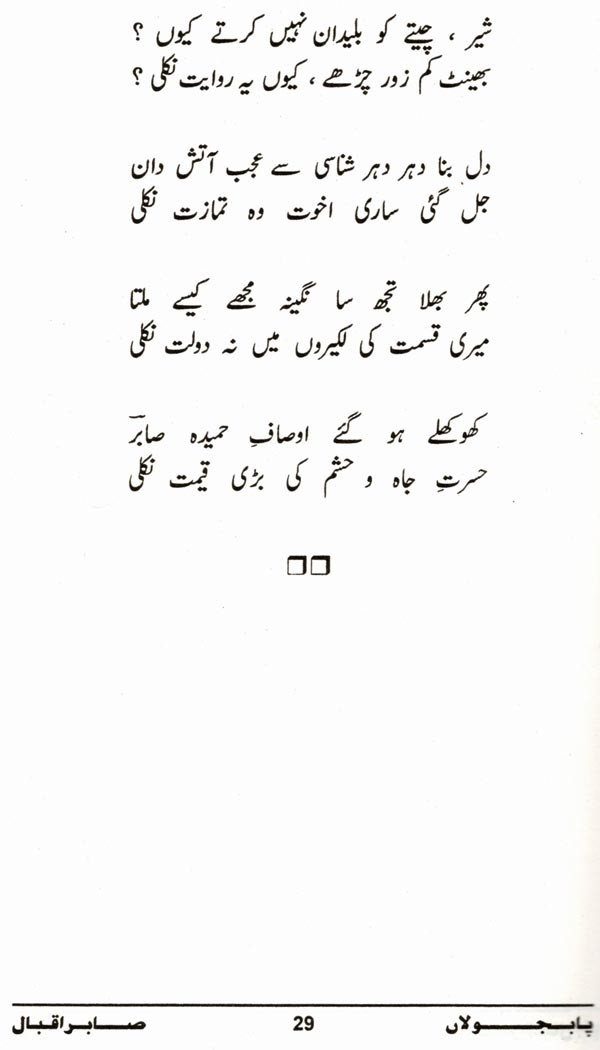 شیر ، چیتے کو بلیدان نہیں کرتے کیوں ؟
بھینٹ کم زور چڑھے ، کیوں یہ روایت نکلی ؟
دل بنا دہر دہر شناسی سے عجب آتش دان
جل گئی ساری اخوت وہ تمازت نکلی
پھر بھلا تجھ سا نگینہ مجھے کیسے ملتا
میری قسمت کی لکیروں میں نہ دولت نکلی
کھوکھلے ہو گئے اوصافِ حمیدہ صابرؔ
حسرتِ جاہ و حشم کی بڑی قیمت نکلی
پابجولاں 29 صابراقبال